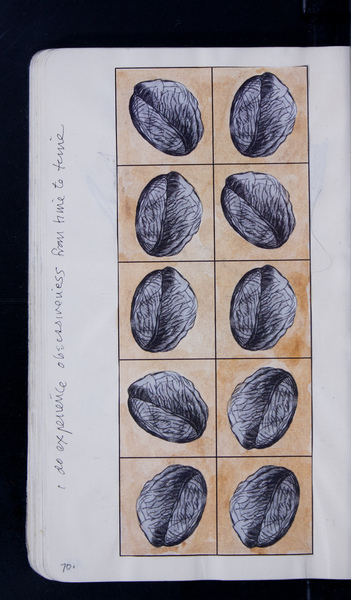 i do experience obsessiveness from time to time
70.